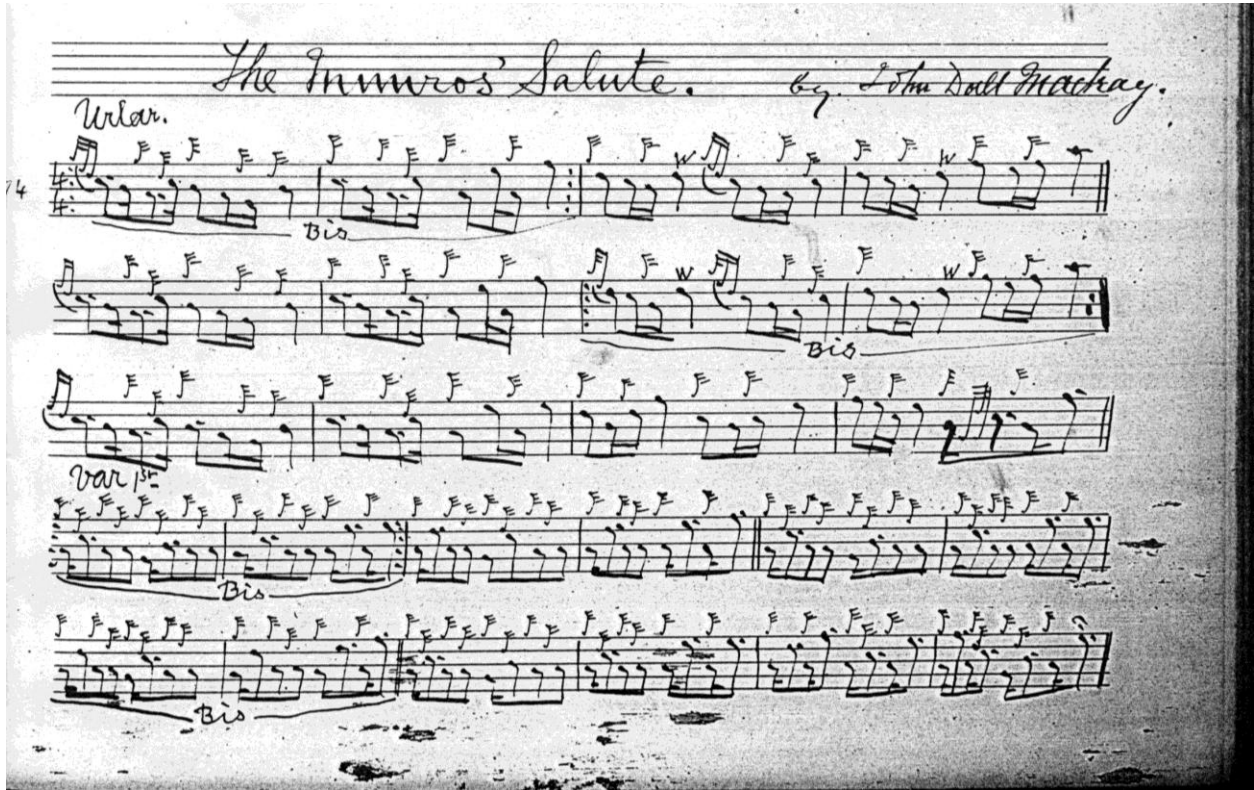 The Munros' Salute. by. John Dall Mackay.
Urlar.
Bis
Bis
Var 1st
Bis
Bis